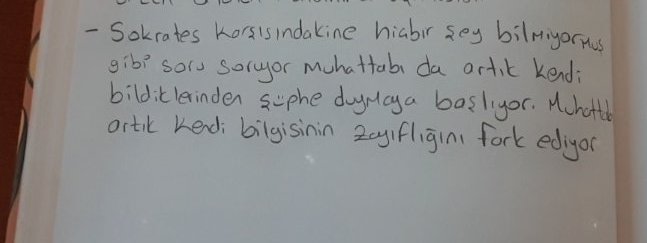 - Sokrates karşısındakine hiçbir şey bilmiyormuş
gibi soru soruyor muhattabı da artık kendi
bildiklerinden şüphe duymaya başlıyor. Muhattabı
artık kendi bilgisinin zayıflığını fark ediyor